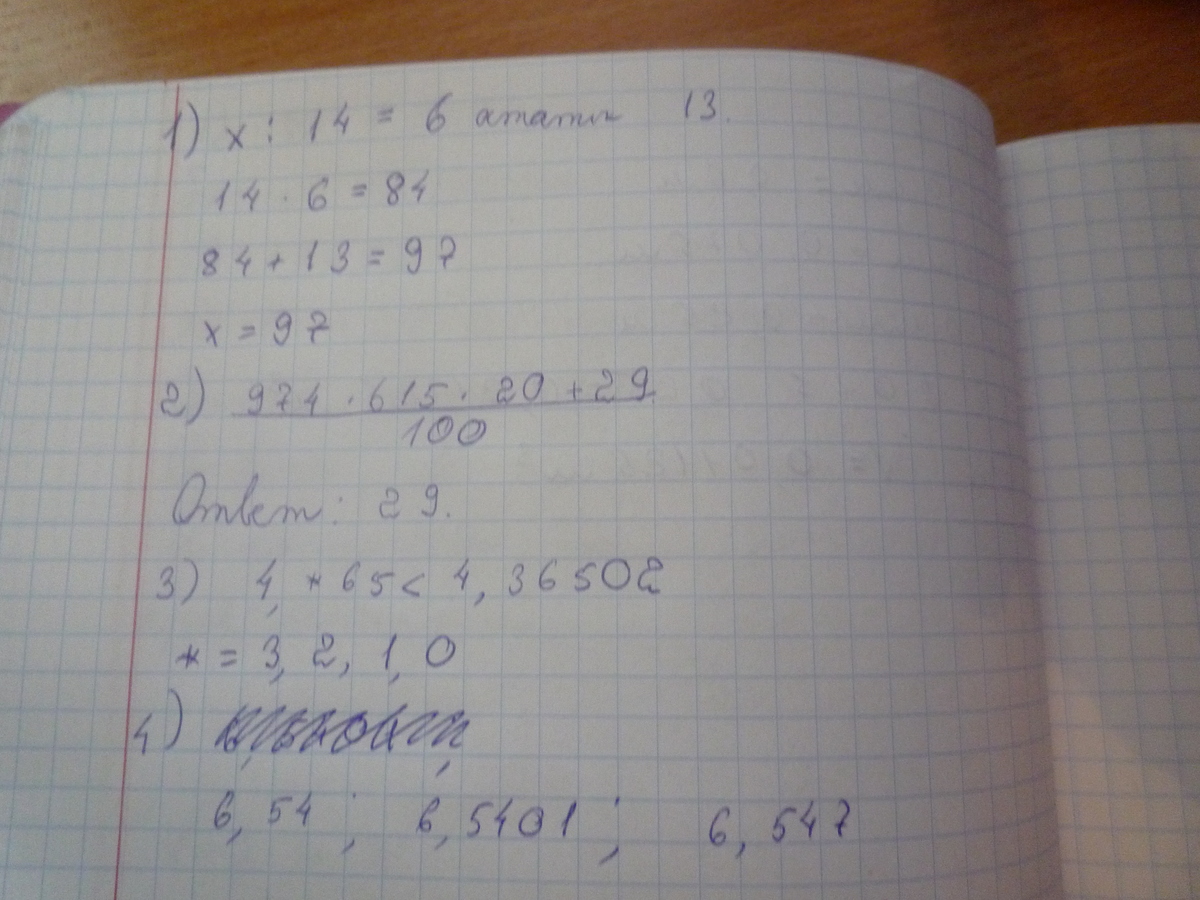 1) x : 14 = 6 13.
14 · 6 = 84
84 + 13 = 97
x = 97
2) 974 · 615 · 20 + 29
100
Ответ: 29.
3) 4, * 65 < 4, 36502
* = 3, 2, 1, 0
4)
6, 54 ; 6, 5401 ; 6, 547